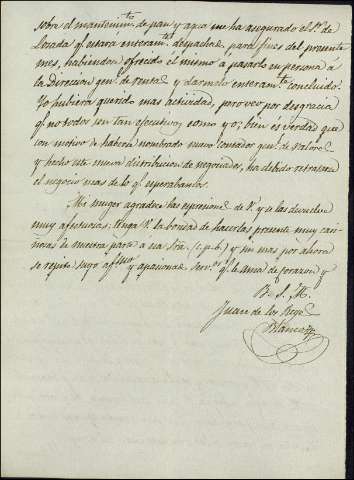 sobre el mantenim.to de pan y agua me ha asegurado el S.r de
Losada q.e estará enteram.te despachado para fines del presente
mes, habiendom ofrecido él mismo a pasarlo en persona á
la Direccion gen.l de rentas y darmelo enteram.te concluido.
Yo hubiera querido mas actividad, pero veo por desgracia
q.e no todos son tan efectivos como yo; bien es verdad que
con motivo de haberse nombrado nuevo contador gen.l de valores
y hecho una nueva distribucion de negociados, ha debido retrasarse
el negocio mas de lo q.e esperabamos.
Mi muger agradece las espresiones de V. y se las devuelve
muy afectuosas: tenga V. la bondad de hacerlas presente muy cari
ñosas de nuestra parte á esa Sra. (c.p.b.) y sin mas por ahora
se repite suyo af.mo y apasionado serv.or q.e le ama de corazon y
B. S. M.
Juan de los Reyes